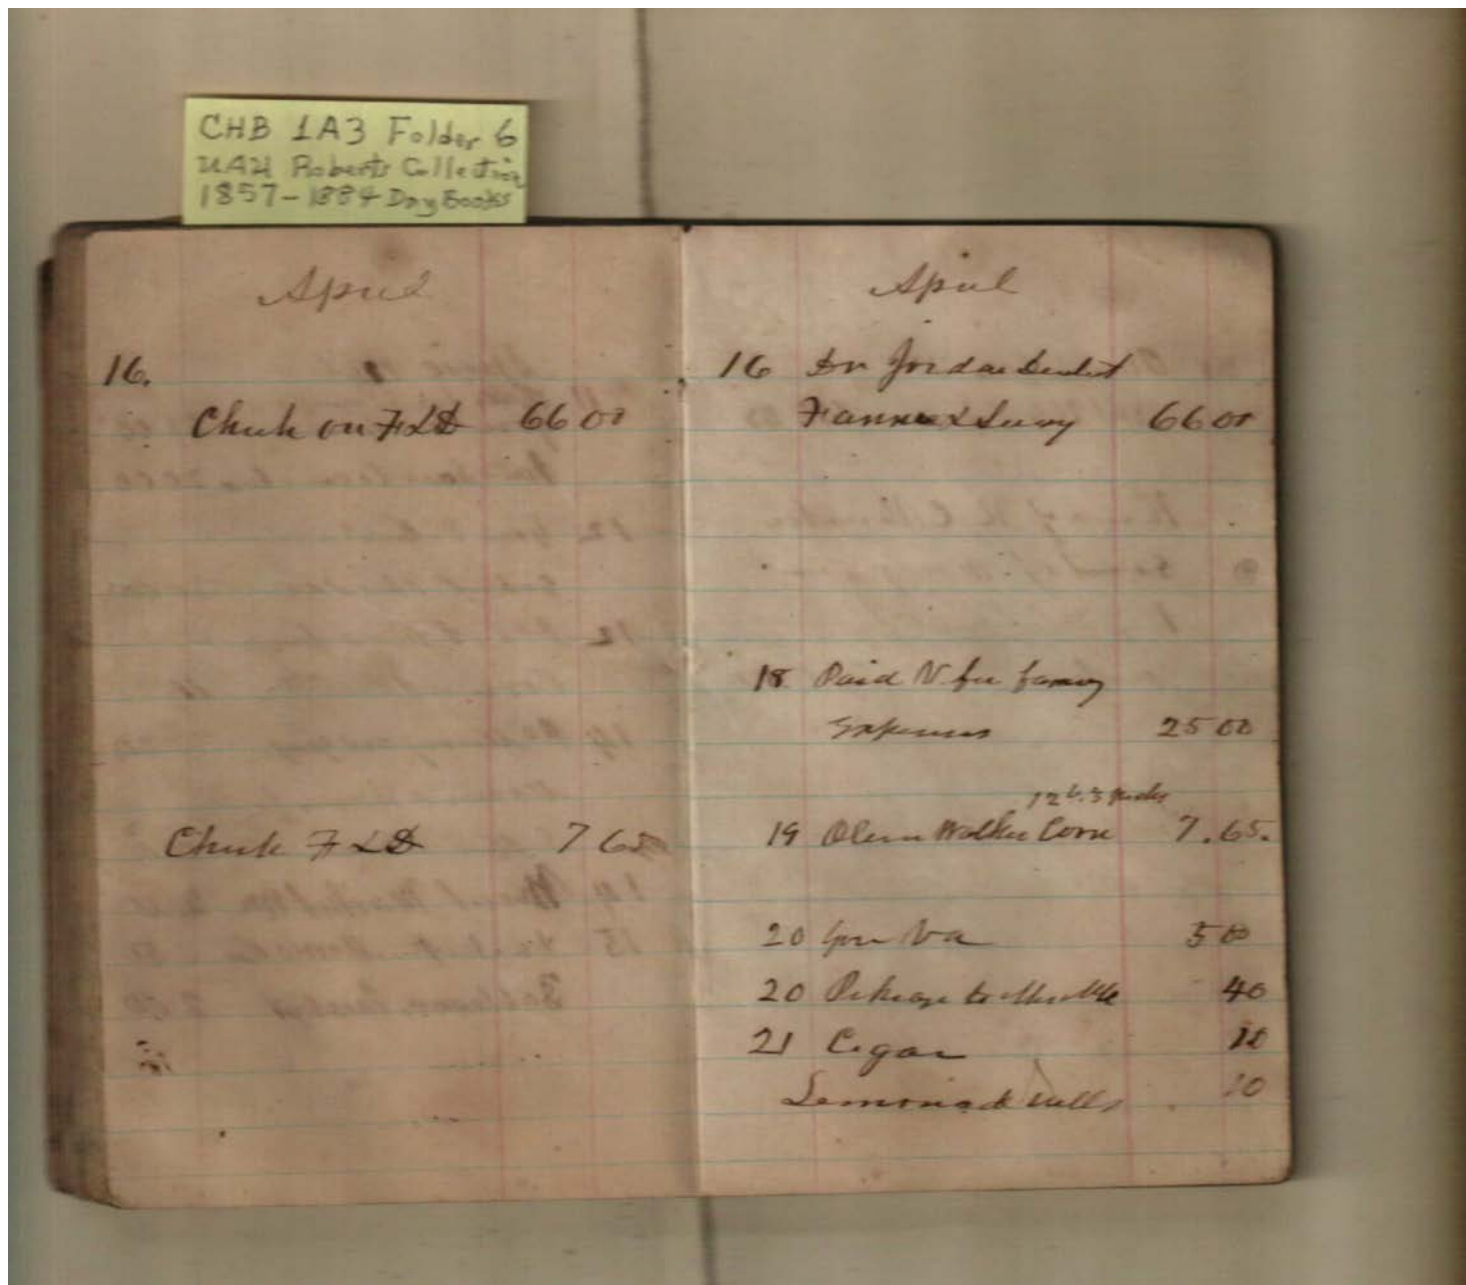 CHB 1A3 Folder 6
UAH Roberts Collection
1857-1884 Day Books
April
16.
Check on F L & 66 00
Check F L & 7 65
April
16 Dr Jordan Dentist
Fannie & Lucy 66 00
18 Paid N for family
Expenses 25 00
19 Walker Corn 7.65.
20 50
20 to 40
21 Cigar 10
Lemonade 10